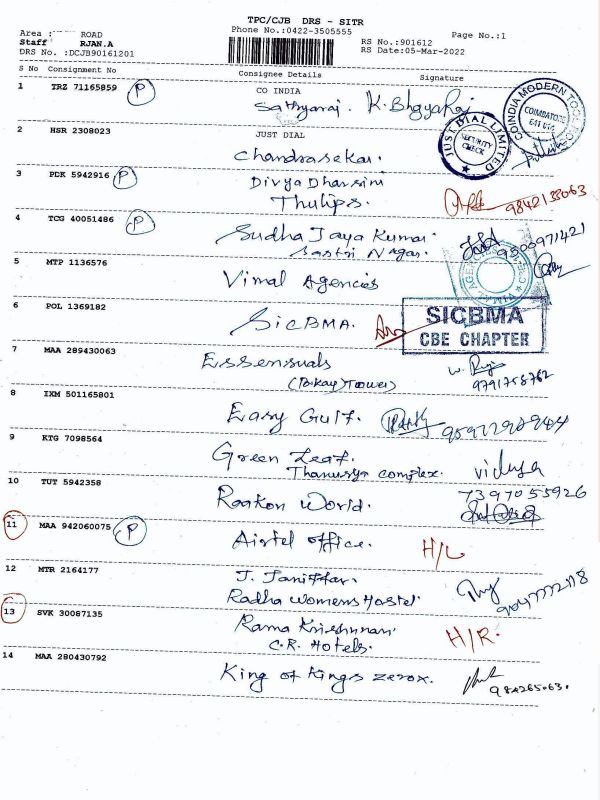 TPC/CJB DRS - SITR
Area : ROAD Phone No.:0422-3505555 Page No.:1
Staff RJAN.A RS No.:901612
DRS No. :DCJB90161201 RS Date:05-Mar-2022
S No Consignment No Consignee Details Signature
1 TRZ 71165859 P CO INDIA
Sathyaraj. K. Bhgyaraj
COINDIA MODERN
COIMBATORE
641 014
JUST DIAL LIMITED
SECURITY CHECK
2 HSR 2308023 JUST DIAL
Chandrasekar.
3 PDK 5942916 P Divya Dharsini
Thulips. 9842133063
4 TCG 40051486 P Sudha Jaya Kumar.
Sastri Nagar.
5 MTP 1136576 Vimal Agencies
VIMAL AGENCIES
6 POL 1369182 SICBMA.
SICBMA
CBE CHAPTER
7 MAA 289430063 Essensuals
(Bikay) Tower) 9791758762
8 IXM 501165801 Easy Gulf.
9 KTG 7098564 Green Leaf.
Thanusya complex. vidhya
10 TUT 5942358 Raakon World. 7397055926
11 MAA 942060075 P Airtel office. H/L
12 MTR 2164177 J. Janiffar.
Radha Womens Hostel.
13 SVK 30087135 Rama Krishnnan.
C.R. Hotels. H/R.
14 MAA 280430792 King of Kings zerox.